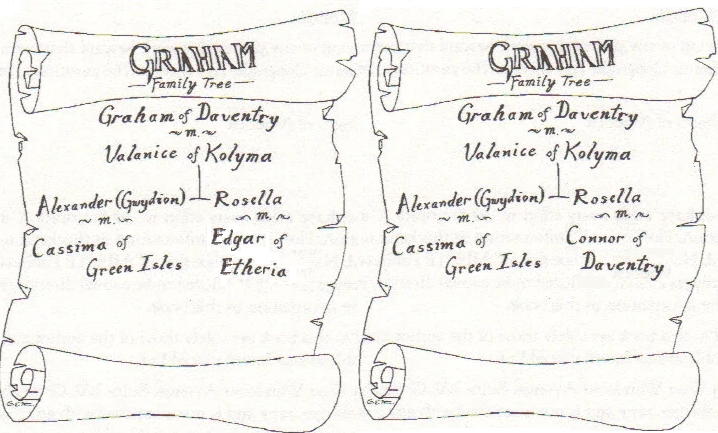 GRAHAM
Family Tree
Graham of Daventry
~ m. ~
Valanice of Kolyma
Alexander (Gwydion) Rosella
~ m. ~ ~ m. ~
Cassima of Edgar of
Green Isles Etheria
GRAHAM
Family Tree
Graham of Daventry
~ m. ~
Valanice of Kolyma
Alexander (Gwydion) Rosella
~ m. ~ ~ m. ~
Cassima of Connor of
Green Isles Daventry